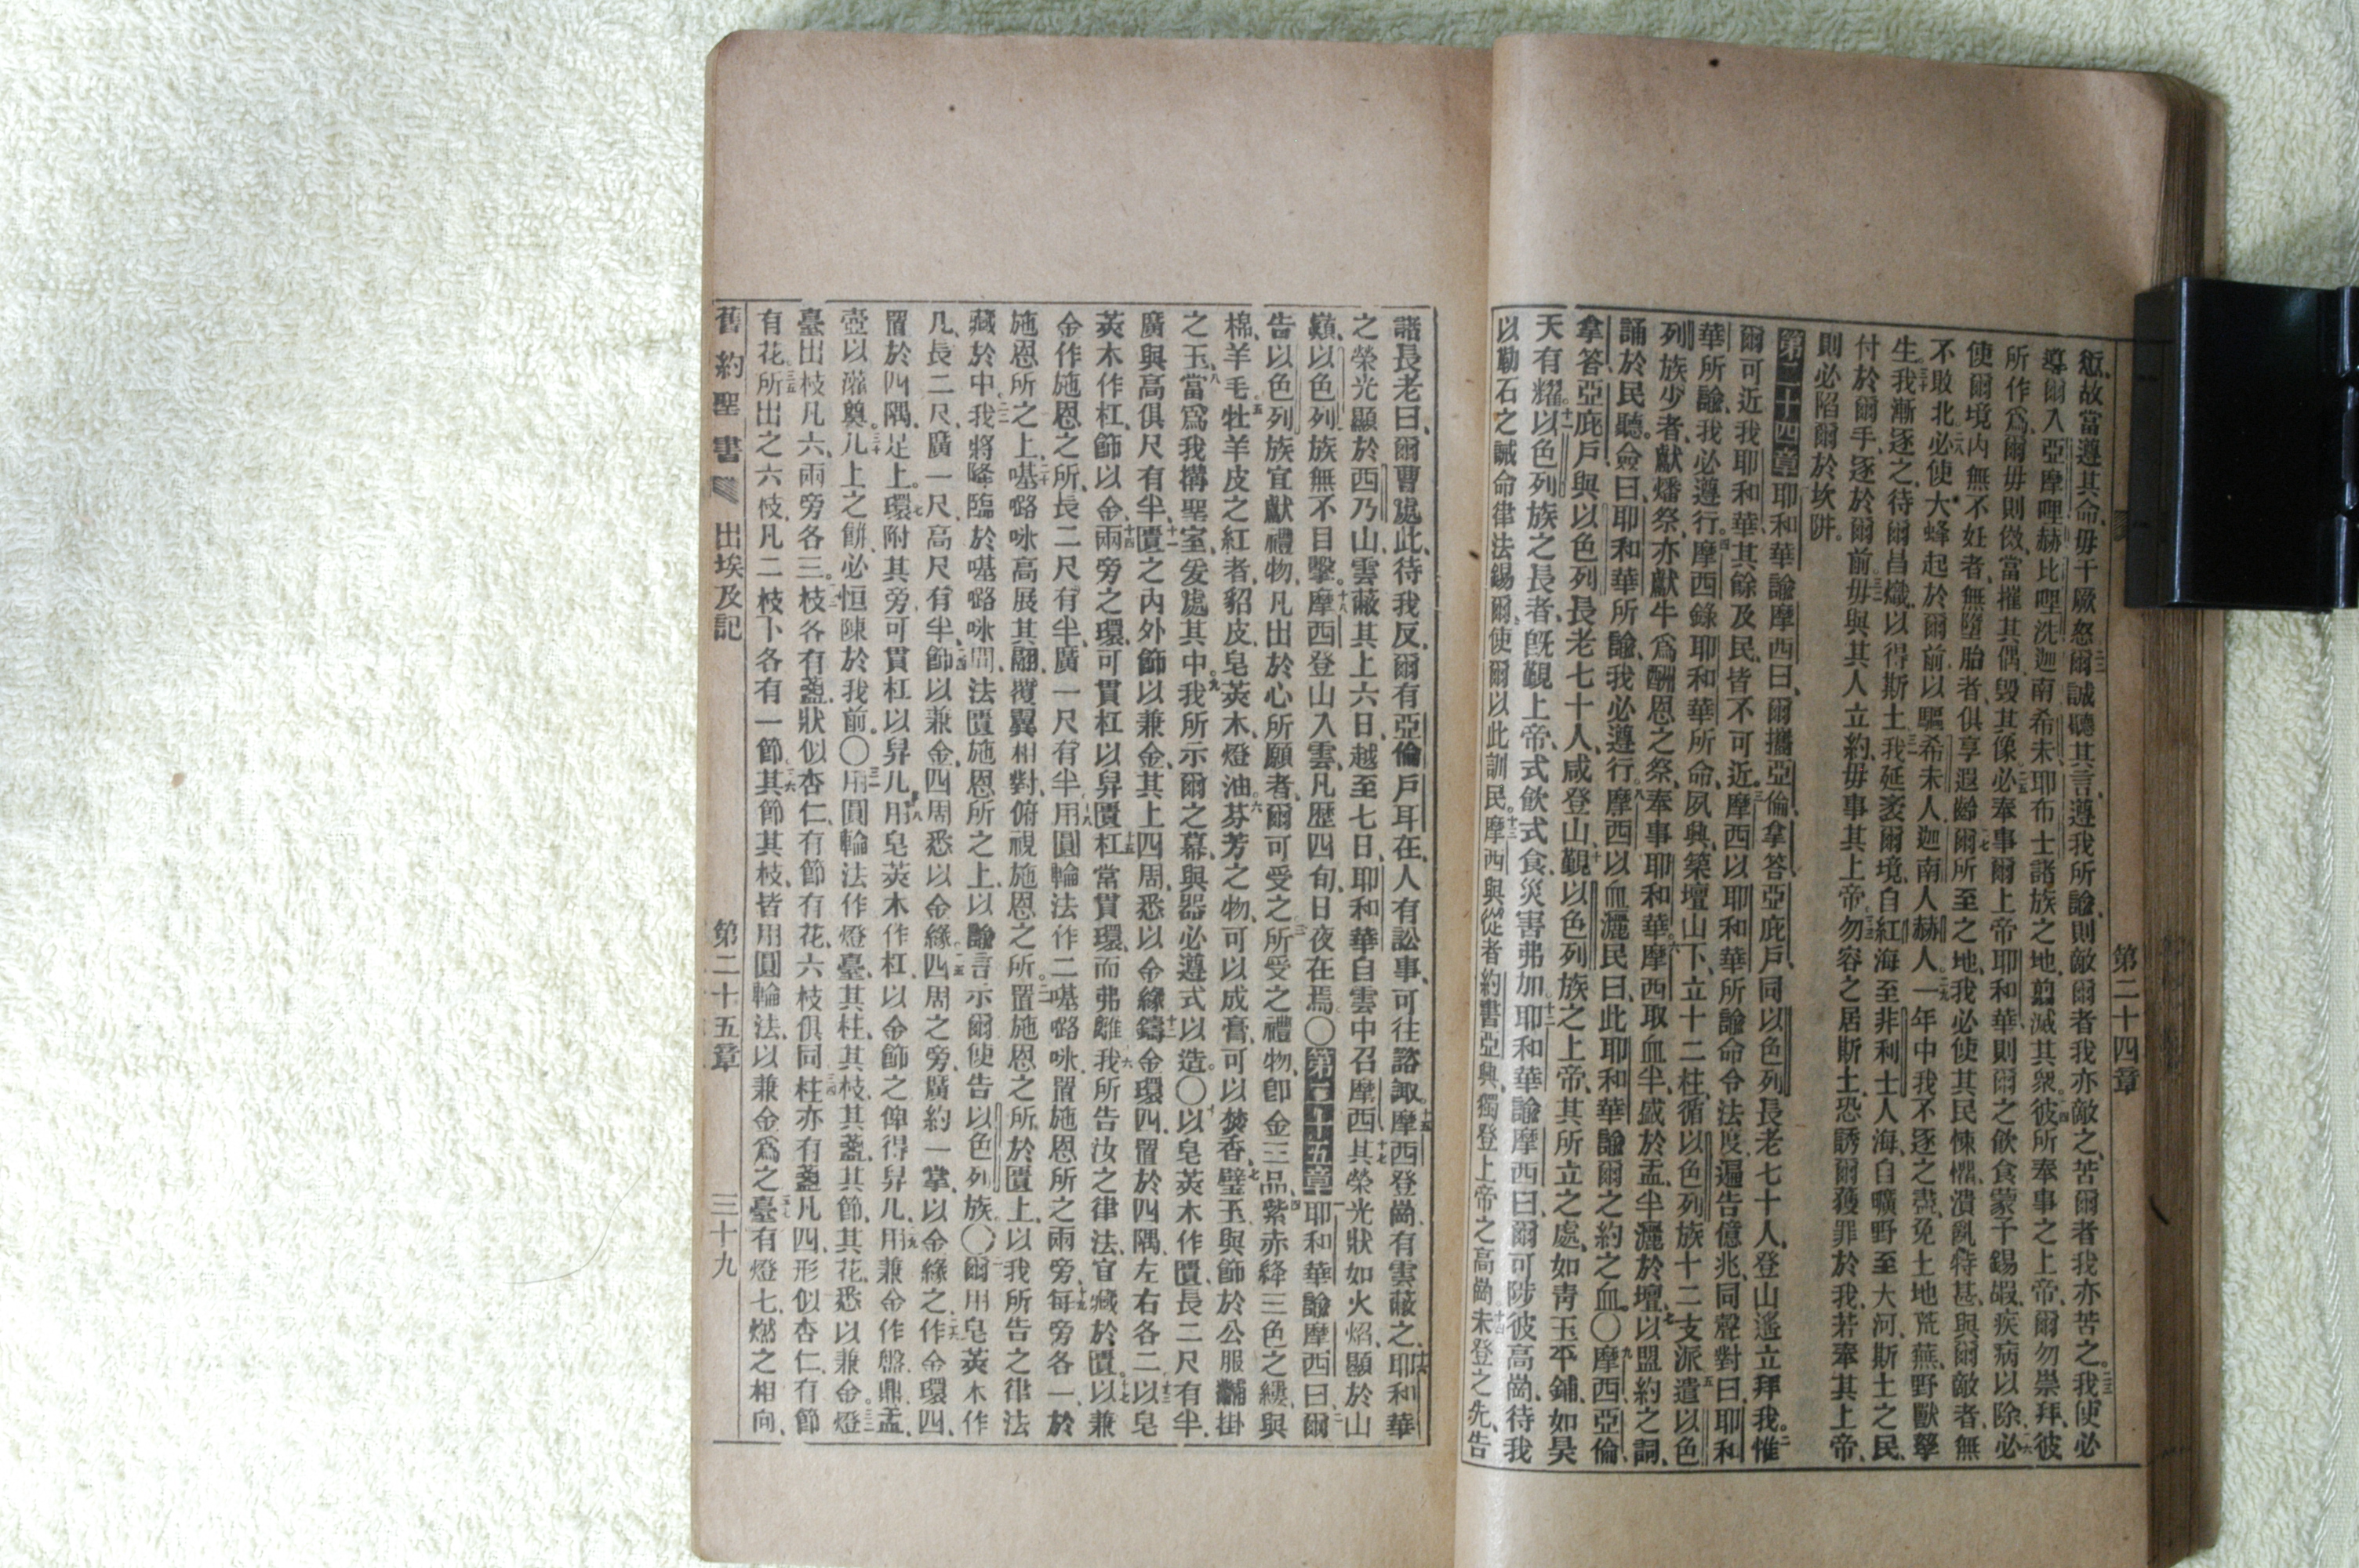 第二十四章
愆、故當遵其命、毋干厥怒、二二爾誠聽其言、遵我所諭、則敵爾者我亦敵之、苦爾者我亦苦之。二三我使必
導爾入亞摩哩、赫、比哩洗、迦南、希未、耶布士諸族之地、翦滅其衆。二四彼所奉事之上帝、爾勿崇拜、彼
所作爲、爾毋則傚、當摧其偶、毀其像、二五必奉事爾上帝耶和華、則爾之飲食蒙予錫嘏、疾病以除、二六必
使爾境內無不妊者、無墮胎者、俱享遐齡、二七爾所至之地、我必使其民悚懼、潰亂特甚、與爾敵者、無
不敢北、二八必使大蜂起於爾前、以驅希未人、迦南人、赫人。二九一年中我不逐之盡、免土地荒蕪、野獸孳
生。三十我漸逐之、待爾昌熾、以得斯土、三一我延袤爾境、自紅海至非利士人海、自曠野至大河、斯土之民、
付於爾手、逐於爾前、三二毋與其人立約、毋事其上帝、三三勿容之居斯土、恐誘爾獲罪於我、若奉其上帝、
則必陷爾於坎阱。
第二十四章 耶和華諭摩西曰、爾攜亞倫、拿答、亞庇戶、同以色列長老七十人、登山遙立拜我。二惟
爾可近我耶和華、其餘及民、皆不可近。三摩西以耶和華所諭命令法度、遍告億兆、同聲對曰、耶和
華所諭、我必遵行。四摩西錄耶和華所命、夙興、築壇山下、立十二柱、循以色列族十二支派、五遣以色
列族少者、獻燔祭、亦獻牛爲酬恩之祭、奉事耶和華。六摩西取血半、盛於盂、半灑於壇、七以盟約之詞、
誦於民聽。僉曰、耶和華所諭、我必遵行。八摩西以血灑民曰、此耶和華諭爾之約之血。〇九摩西、亞倫、
拿答、亞庇戶、與以色列長老七十人、咸登山、十覲以色列族之上帝、其所立之處、如靑玉平鋪、如昊
天有耀。十一以色列族之長者、旣覲上帝、式飮式食、災害弗加。十二耶和華諭摩西曰、爾可陟彼高崗、待我
以勒石之誡命律法錫爾、使爾以此訓民。十三摩西與從者約書亞興、獨登上帝之高崗、十四未登之先、告
諸長老曰、爾曹處此、待我反、爾有亞倫戶耳在、人有訟事、可往諮諏。十五摩西登崗、有雲蔽之、十六耶和華
之榮光顯於西乃山、雲蔽其上六日、越至七日、耶和華自雲中召摩西、十七其榮光狀如火焰、顯於山
巔、以色列族無不目擊。十八摩西登山入雲、凡歷四旬、日夜在焉。〇第二十五章 一耶和華諭摩西曰、二爾
告以色列族宜獻禮物、凡出於心所願者、爾可受之、三所受之禮物、卽金三品、四紫赤絳三色之縷、與
棉、羊毛、五牡羊皮之紅者、貂皮、皂莢木、燈油、六芬芳之物、可以成膏、可以焚香、七璧玉與飾於公服黼掛
之玉、八當爲我搆聖室、爰處其中。九我所示爾之幕、與器必遵式以造。〇十以皂莢木作匱、長二尺有半、
廣與高俱尺有半、十一匱之內外、飾以兼金、其上四周、悉以金緣、十二鑄金環四、置於四隅、左右各二、十三以皂
莢木作杠、飾以金、十四兩旁之環、可貫杠以舁匱、十五杠當貫環、而弗離、十六我所告汝之律法、宜藏於匱。十七以兼
金作施恩之所、長二尺有半、廣一尺有半、十八用圓輪法作二𠼻𡀔咏、置施恩所之兩旁、十九每旁各一、於
施恩所之上、二十𠼻𡀔咏高展其翮、攢翼相對、俯視施恩之所。二一置施恩之所於匱上、以我所告之律法
藏於中、二二我將降臨於𠼻𡀔咏間、法匱施恩所之上、以諭言示爾、使告以色列族〇二三爾用皂莢木作
几、長二尺、廣一尺、高尺有半、二四飾以兼金、四周悉以金緣、二五四周之旁、廣約一掌、以金緣之、二六作金環四、
置於四隅、足上。二七環附其旁、可貫杠以舁几、二八用皂莢木作杠、以金飾之、俾得舁几、二九用兼金作盤鼎盂、
壺以灌奠。三十几上之餅、必恒陳於我前。〇三一用圓輪法作燈臺、其柱、其枝、其盞、其節、其花、悉以兼金。三二燈
臺出枝凡六、兩旁各三。三三枝各有盞、狀似杏仁、有節有花、六枝俱同、三四柱亦有盞凡四、形似杏仁、有節
有花。三五所出之六枝、凡二枝下各有一節、三六其節其枝、皆用圓輪法、以兼金爲之、三七臺有燈七、燃之相向、
舊約聖書 出埃及記 第二十五章 三十九